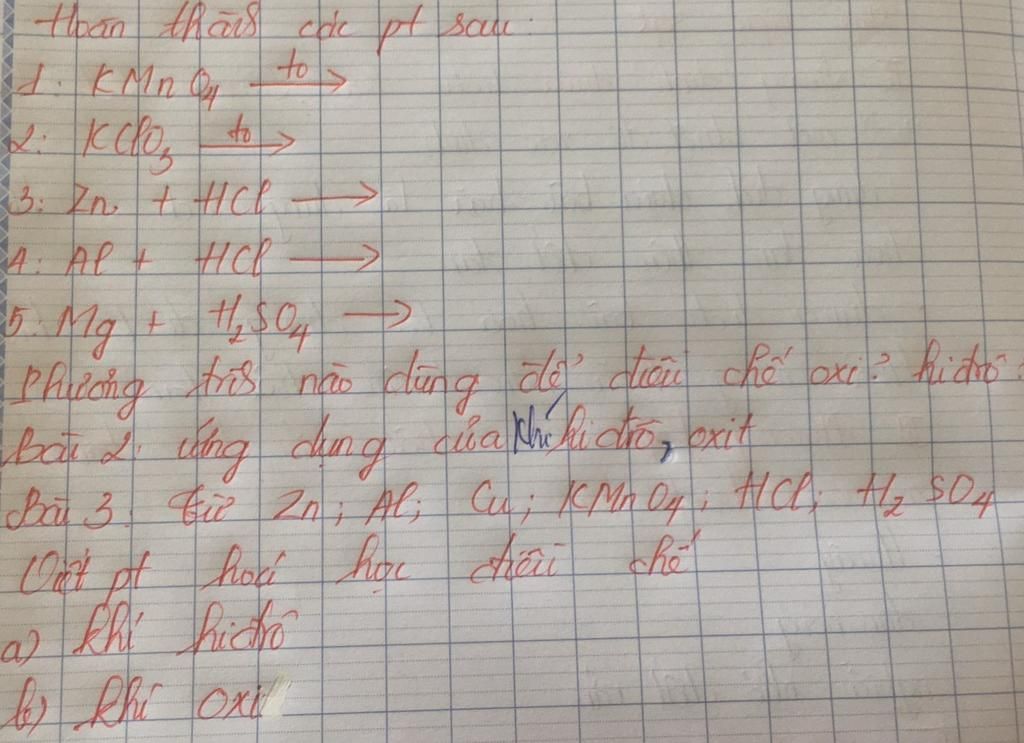 Hoàn thành các pt sau:
1: KMnO4 to→
2: KClO3 to→
3: Zn + HCl →
4: Al + HCl →
5: Mg + H2SO4 →
Phương trình nào dùng để điều chế oxi? hiđrô?
Bài 2: ứng dụng của khí hiđrô, oxit
Bài 3: từ Zn; Al; Cu; KMnO4; HCl; H2SO4
Viết pt hoá học điều chế
a) khí hiđrô
b) khí oxi